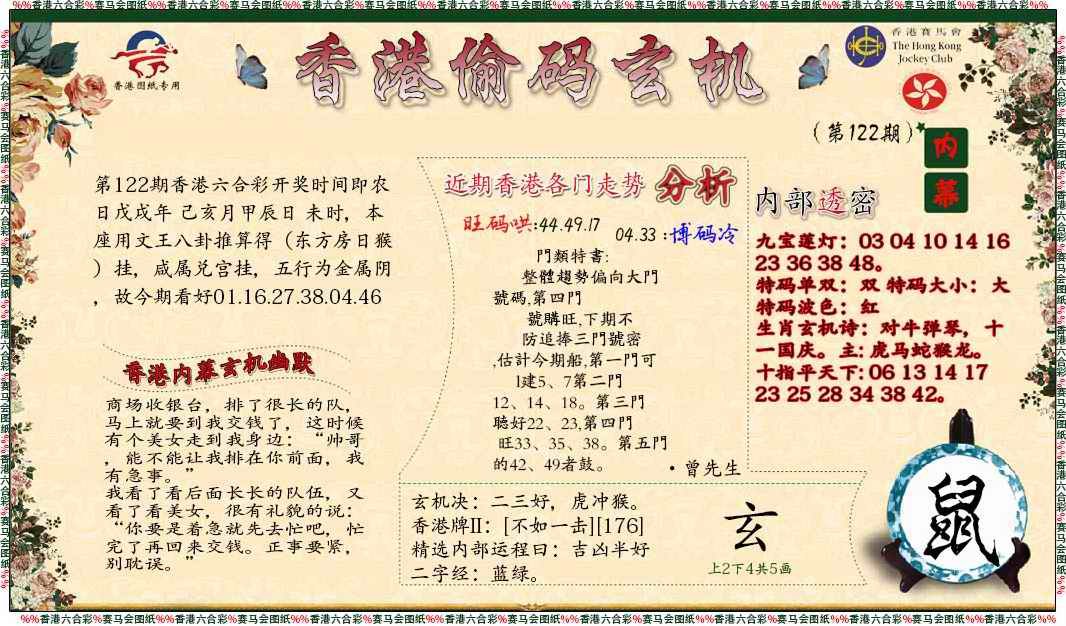 %%香港六合彩%赛马会图纸%%香港六合彩%赛马会图纸%%香港六合彩%赛马会图纸%%香港六合彩%赛马会图纸%%香港六合彩%赛马会图纸%%香港六合彩%赛马会图纸%%香港六合彩%%
香港图纸专用
香港偷码玄机
香港賽馬會
The Hong Kong
Jockey Club
(第122期)
内幕
第122期香港六合彩开奖时间即农
日戊戌年 己亥月甲辰日 未时，本
座用文王八卦推算得（东方房日猴
）挂，咸属兑宫挂，五行为金属阴
，故今期看好01.16.27.38.04.46
香港内幕玄机幽默
商场收银台，排了很长的队，
马上就要到我交钱了，这时候
有个美女走到我身边：“帅哥
，能不能让我排在你前面，我
有急事。”
我看了看后面长长的队伍，又
看了看美女，很有礼貌的说：
“你要是着急就先去忙吧，忙
完了再回来交钱。正事要紧，
别耽误。”
近期香港各门走势 分析
旺码哄:44.49.17
04.33 :博码冷
門類特書:
整體趨勢偏向大門
號碼,第四門
號購旺,下期不
防追捧三門號密
,估計今期船,第一門可
1建5、7第二門
12、14、18。第三門
聽好22、23,第四門
旺33、35、38。第五門
的42、49者鼓。
·曾先生
内部透密
九宝莲灯：03 04 10 14 16
23 36 38 48。
特码单双：双 特码大小：大
特码波色：红
生肖玄机诗：对牛弹琴，十
一国庆。主: 虎马蛇猴龙。
十指平天下: 06 13 14 17
23 25 28 34 38 42。
玄机决：二三好，虎冲猴。
香港牌II：[不如一击][176]
精选内部运程曰：吉凶半好
二字经：蓝绿。
玄
上2下4共5画
鼠
%%香港六合彩%赛马会图纸%%香港六合彩%赛马会图纸%%香港六合彩%赛马会图纸%%香港六合彩%赛马会图纸%%香港六合彩%赛马会图纸%%香港六合彩%赛马会图纸%%香港六合彩%%